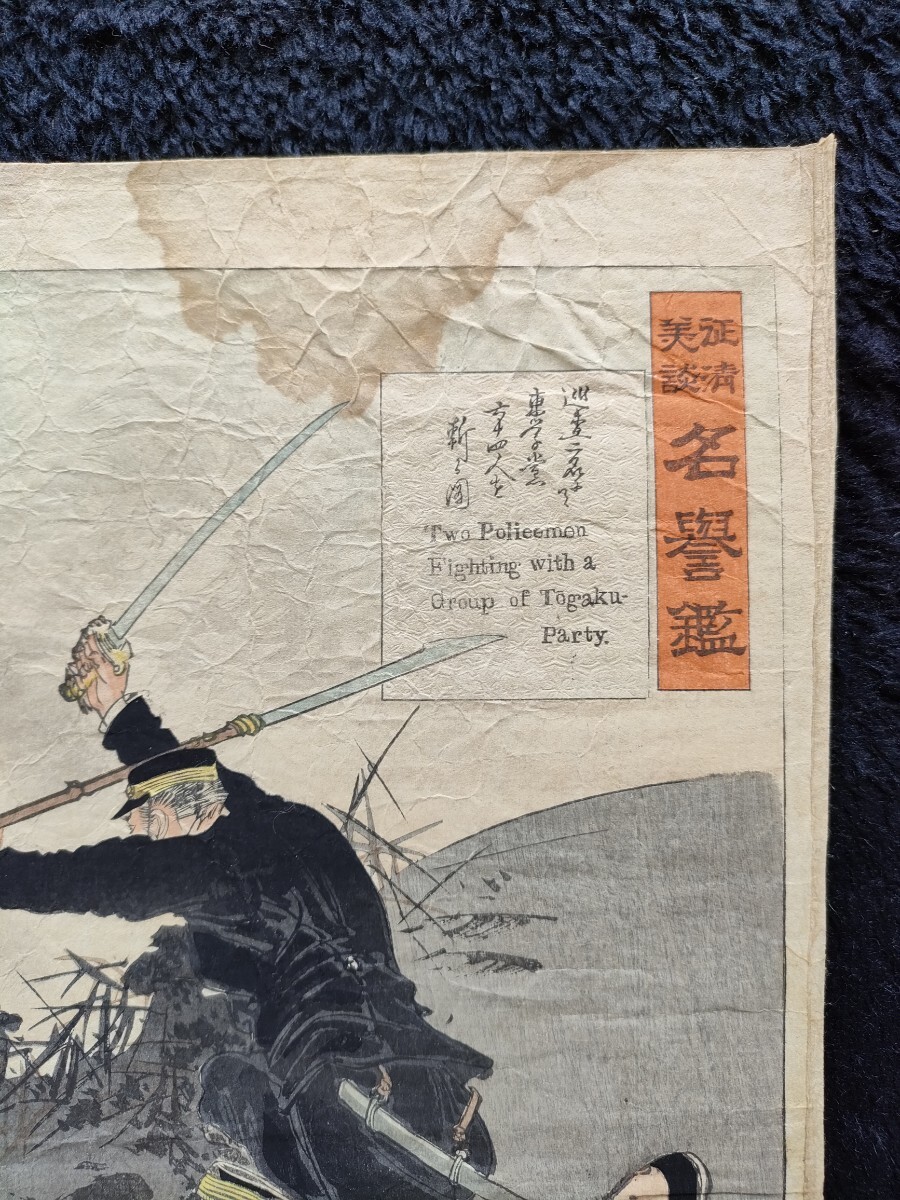 征清
美談
名譽鑑
巡査二名ニテ
東学党
二十四人を
斬る図
Two Policemen
Fighting with a
Group of Tōgaku-
Party.